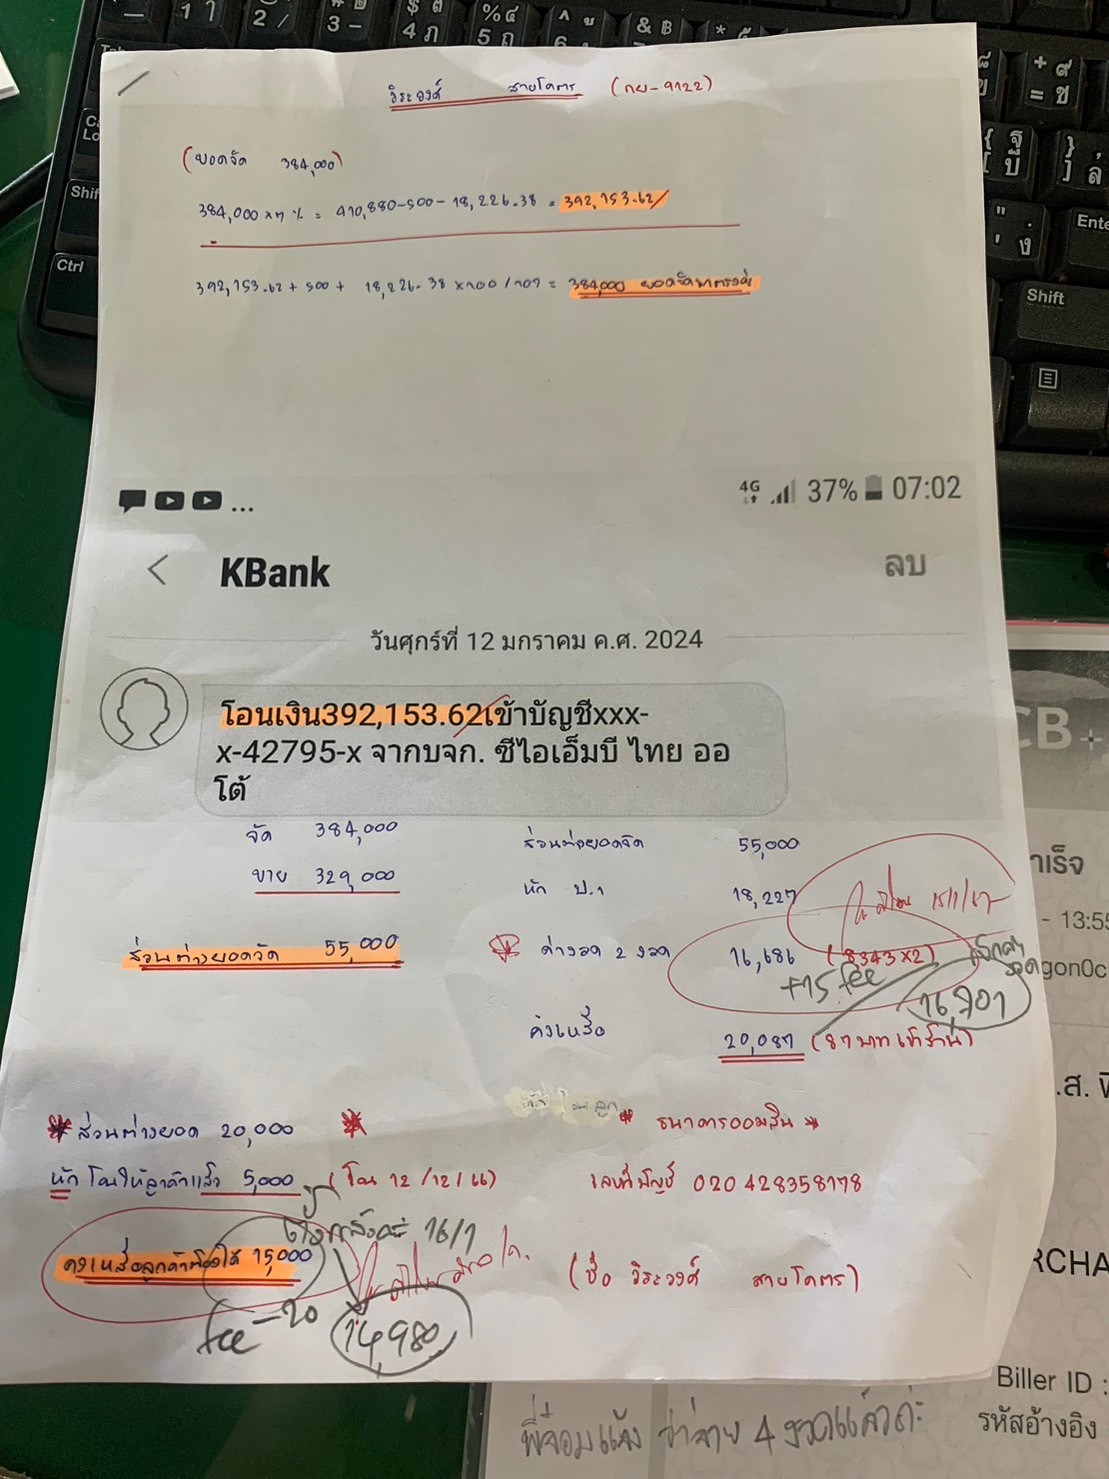 วิระวงศ์ สายโคตร (กย-9122)
(ยอดจัด 384,000)
384,000 x 7 % = 410,880-500-18,226.38 = 392,153.62/
392,153.62 + 500 + 18,226.38 x 100 / 107 = 384,000 ยอดจัด
4G 37% 07:02
...
< KBank ลบ
วันศุกร์ที่ 12 มกราคม ค.ศ. 2024
โอนเงิน392,153.62เข้าบัญชีxxx-
x-42795-x จากบจก. ซีไอเอ็มบี ไทย ออ
โต้
จัด 384,000
ขาย 329,000
ส่วนต่างยอดจัด 55,000
ส่วนต่างยอดจัด 55,000
หัก ป.1 18,227
15/1/67
ค่างวด 2 งวด 16,686 (8,343x2)
+15 fee
16,701
คงเหลือ 20,087 (87 บาท เข้าร้าน)
* ส่วนต่างยอด 20,000 *
หัก โอนให้ลูกค้าแล้ว 5,000 (โอน 12/12/66)
16/1
คงเหลือลูกค้าต้องได้ 15,000
fee - 20
14,980
* ธนาคารออมสิน *
เลขที่บัญชี 020428358178
(ชื่อ วิระวงศ์ สายโคตร)
CB+
าเร็จ
- 13:55
gon0c
.ส. พี
RCHA
Biller ID :
รหัสอ้างอิง
พี่จอมแจ้ง ว่าจ่าย 4 งวดแล้วค่ะ